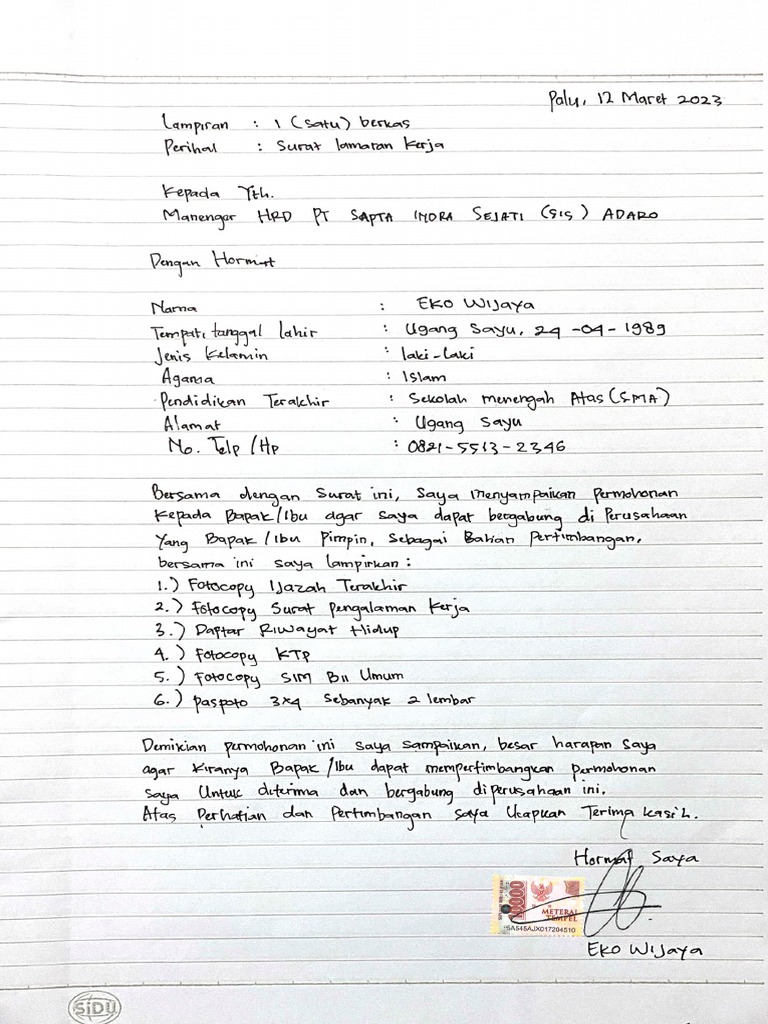 Palu, 12 Maret 2023
Lampiran : 1 (satu) berkas
Perihal : Surat lamaran kerja
Kepada Yth.
Manengar HRD PT SAPTA INDRA SEJATI (SIS) ADARO
Dengan Hormat
Nama : EKO WIJAYA
Tempat, tanggal lahir : Ugang Sayu, 24 - 04 - 1989
Jenis Kelamin : laki-laki
Agama : Islam
Pendidikan Terakhir : Sekolah menengah Atas (SMA)
Alamat : Ugang Sayu
No. Telp /Hp : 0821-5513-2346
Bersama dengan Surat ini, Saya menyampaikan permohonan
Kepada Bapak/Ibu agar saya dapat bergabung di Perusahaan
Yang Bapak/Ibu Pimpin, Sebagai Bahan Pertimbangan,
bersama ini saya lampirkan :
1.) Fotocopy Ijazah Terakhir
2.) Fotocopy Surat Pengalaman Kerja
3.) Daptar Riwayat Hidup
4.) Fotocopy KTP
5.) Fotocopy SIM BII Umum
6.) paspoto 3x4 Sebanyak 2 lembar
Demikian permohonan ini saya sampaikan, besar harapan Saya
agar Kiranya Bapak/Ibu dapat mempertimbangkan permohonan
saya Untuk diterima dan bergabung diperusahaan ini.
Atas Perhatian dan Pertimbangan saya Ucapkan Terima kasih.
Hormat Saya
10000
METERAI
TEMPEL
5A545AJX017204510
EKO WIJAYA
SiDU